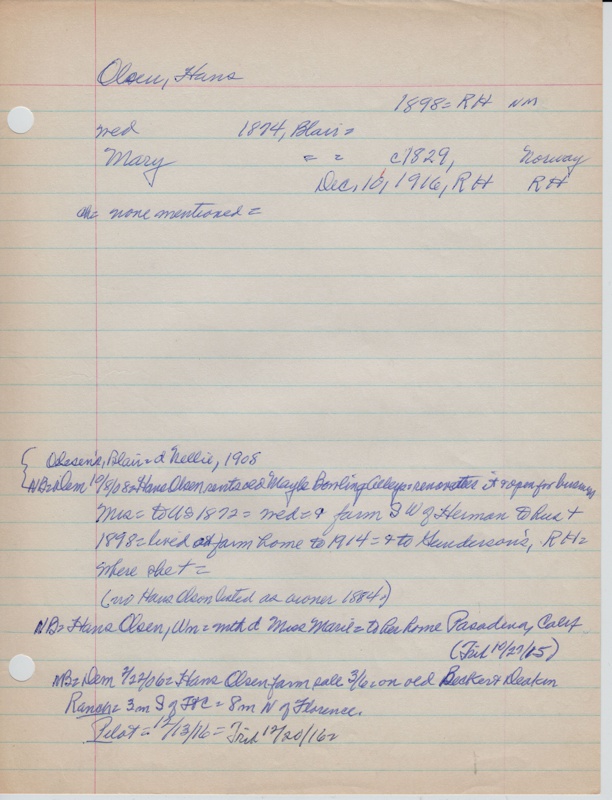 Olsen, Hans
1898 = RH NM
wed 1874, Blair =
Mary = = c1829, Norway
Dec. 10, 1916, RH RH
ch = none mentioned =
Olesen's, Blair = d Nellie, 1908
NB = Dem 10/8/08 = Hans Olsen rents old Mayle Bowling Alley = renovates it & open for business
Mrs = to US 1872 = wed = & farm S W of Herman to hus +
1898 = lived on farm home to 1914 = & to Gunderson's, RH =
where she + =
(no Hans Olson listed as owner 1884.)
NB = Hans Olsen, Wm = mth d Miss Marie = to her home Pasadena, Calif
(Trib 10/27/05)
NB = Dem 2/22/06 = Hans Olsen farm sale 3/6 = on old Deakin
Ranch = 3 m S of FtC = 8 m W of Florence.
Pilot = 12/13/16 = Trib 12/20/16 =